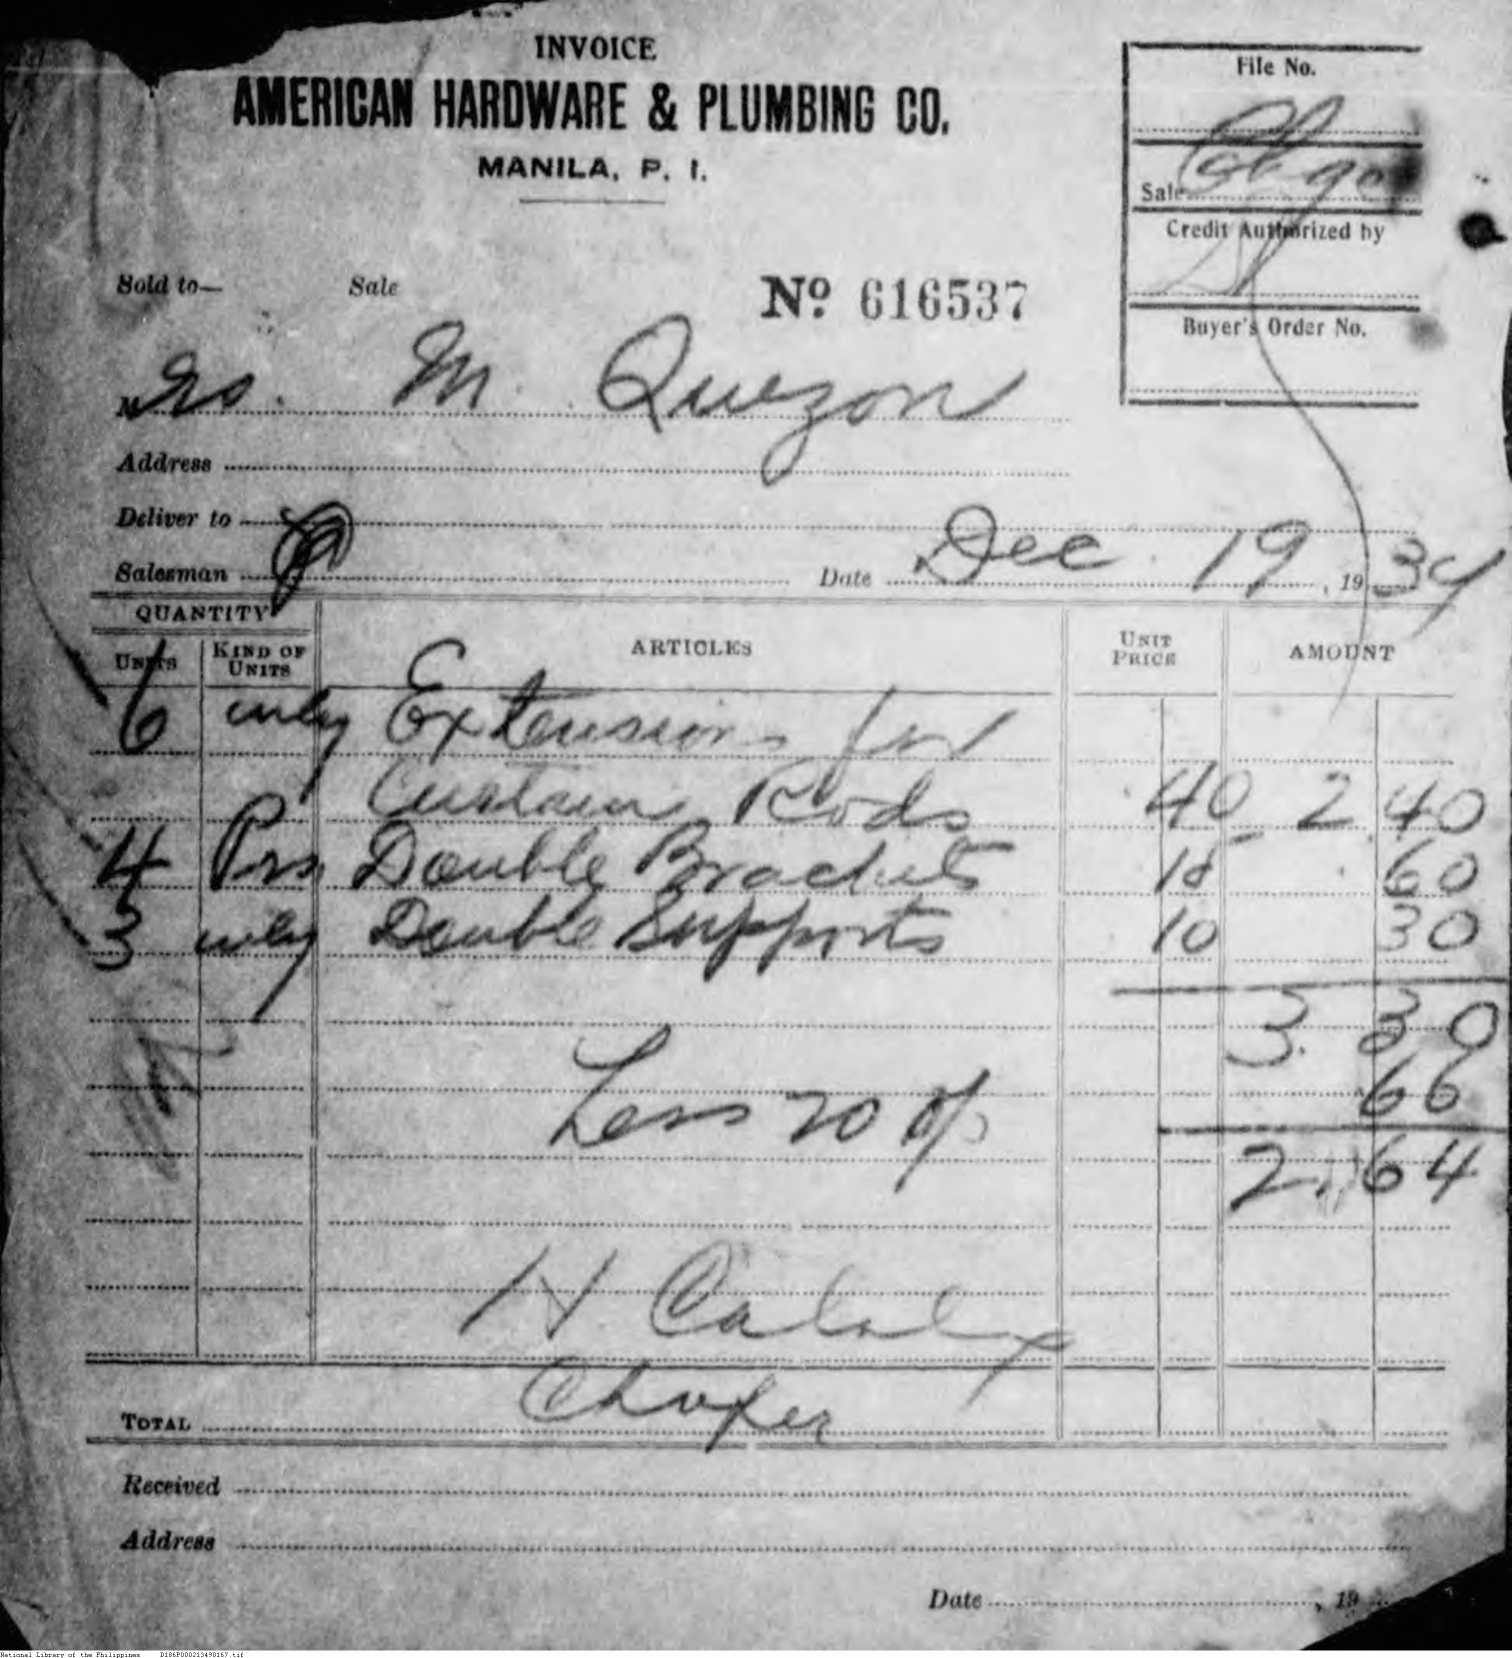 INVOICE
AMERICAN HARDWARE & PLUMBING CO.
MANILA, P. I.
File No.
Sale
Credit Authorized by
Buyer's Order No.
Sold to— Sale
No 616537
Mrs. M. Quezon
Address
Deliver to
Salesman Date Dec. 19, 1934
QUANTITY
UNITS KIND OF UNITS ARTICLES UNIT PRICE AMOUNT
6 only Extensions for
Curtain Rods .40 2 40
4 Prs Double Brackets 15 .60
3 only Double Supports 10 30
3. 30
Less 20 % 66
2. 64
H
Chofer
TOTAL
Received
Address
Date , 19
National Library of the Philippines D186P000213490167.tif